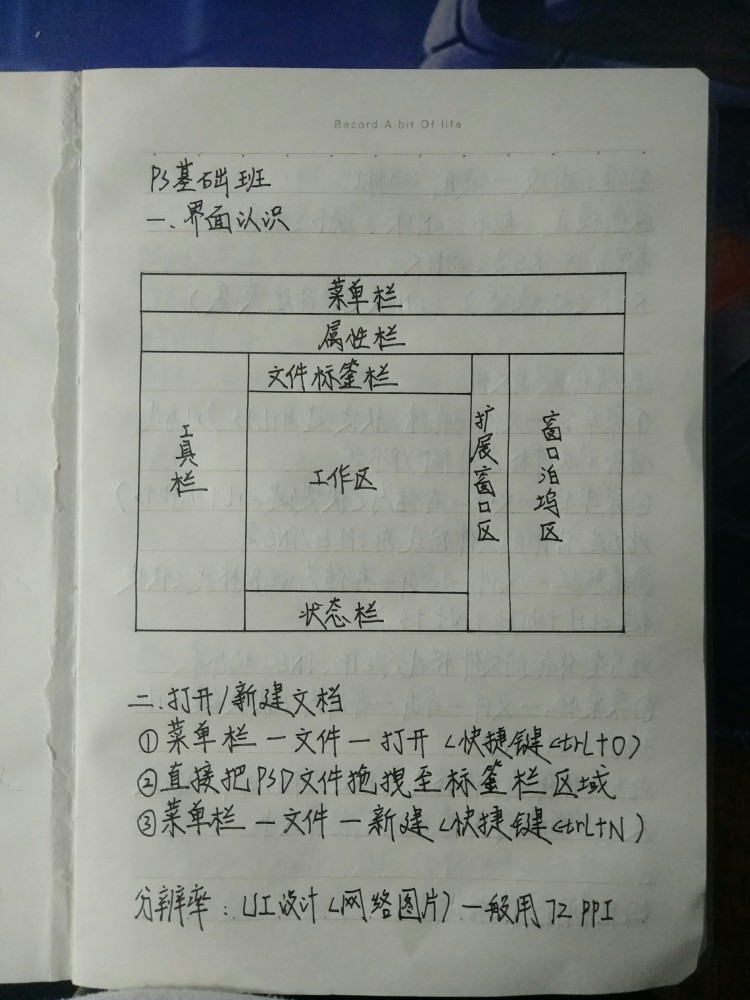 Record A bit Of life
PS基础班
一、界面认识
菜单栏
属性栏
文件标签栏
工具栏
工作区
扩展窗口区
窗口泊坞区
状态栏
二、打开/新建文档
①菜单栏一文件一打开(快捷键ctrl+O)
②直接把PSD文件拖拽至标签栏区域
③菜单栏一文件一新建(快捷键ctrl+N)
分辨率：UI设计(网络图片)一般用72PPI